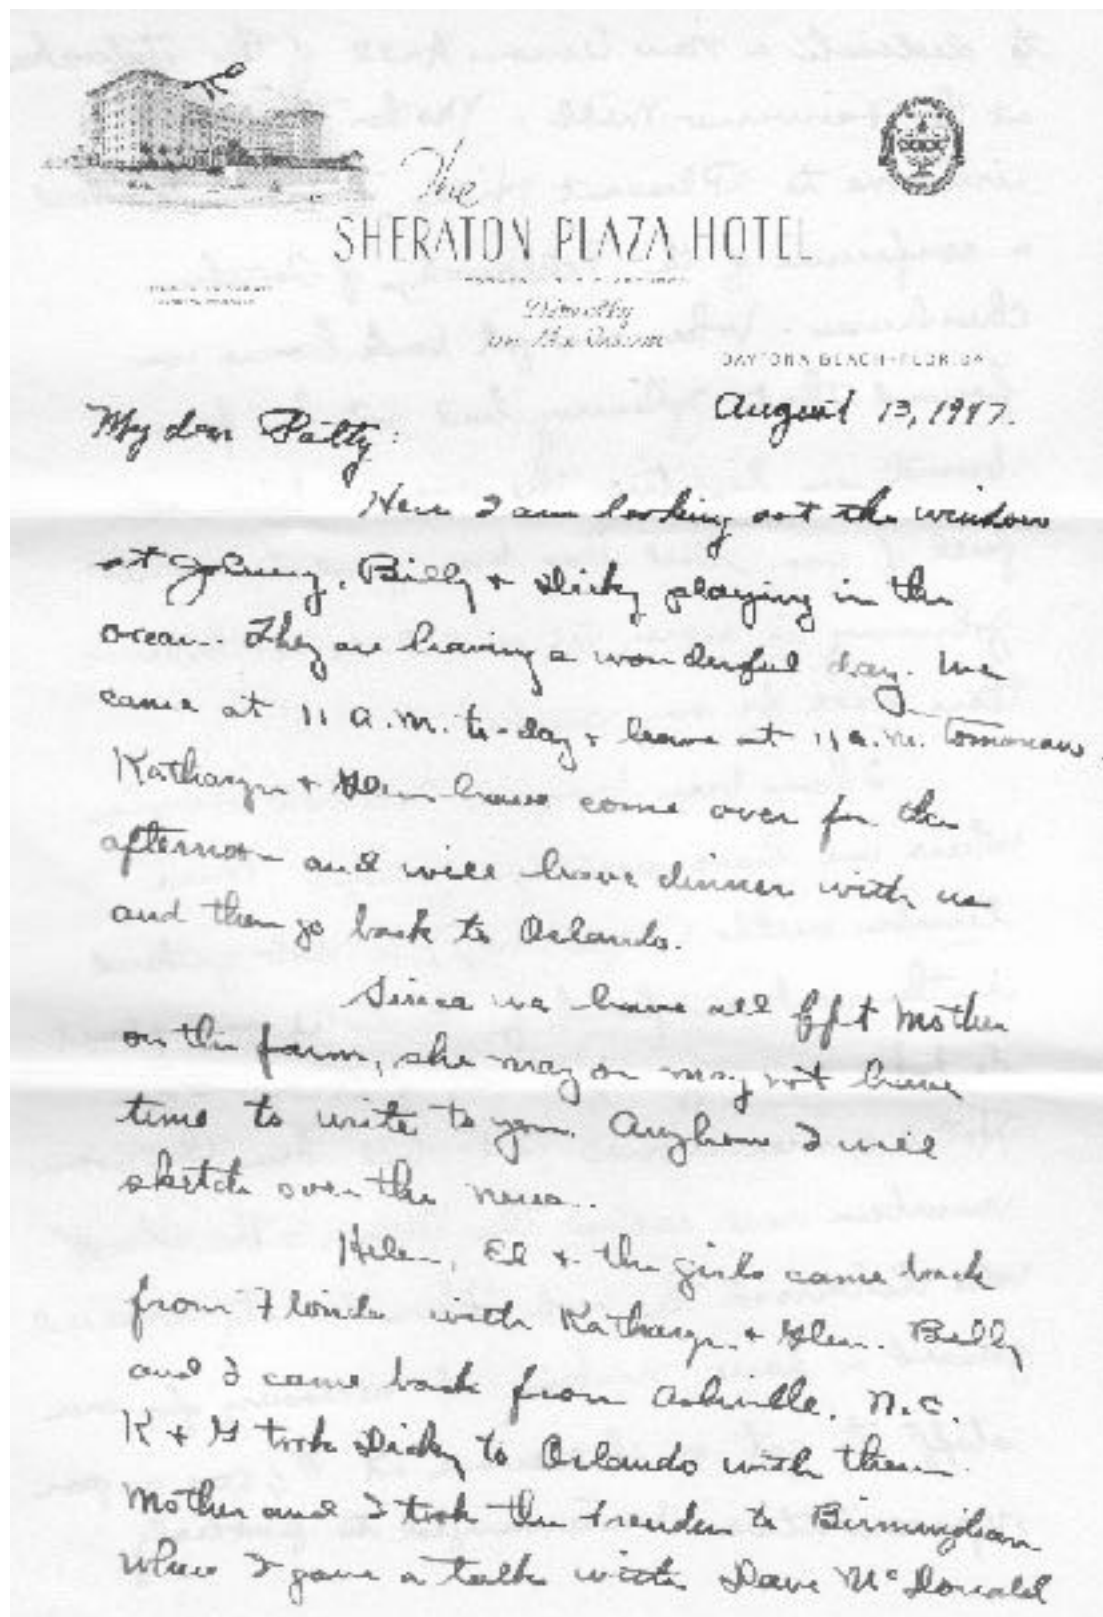 The
SHERATON PLAZA HOTEL
Directly
on the Ocean
DAYTONA BEACH-FLORIDA
August 13, 1947.
My dear Patty:
Here I am looking out the window
at Johnny, Billy + Dicky playing in the
ocean. They are having a wonderful day. We
came at 11 A.M. to-day + leave at 11 a.m. tomorrow.
Katharyn + Glen have come over for the
afternoon and will have dinner with us
and then go back to Orlando.
Since we have all left Mother
on the farm, she may or may not have
time to write to you. Anyhow I will
sketch over the news.
Helen, Ed + the girls came back
from Florida with Katharyn + Glen. Billy
and I came back from Asheville, N.C.
K + G took Dicky to Orlando with them.
Mother and I took the to Birmingham
where I gave a talk with Dave McDonald